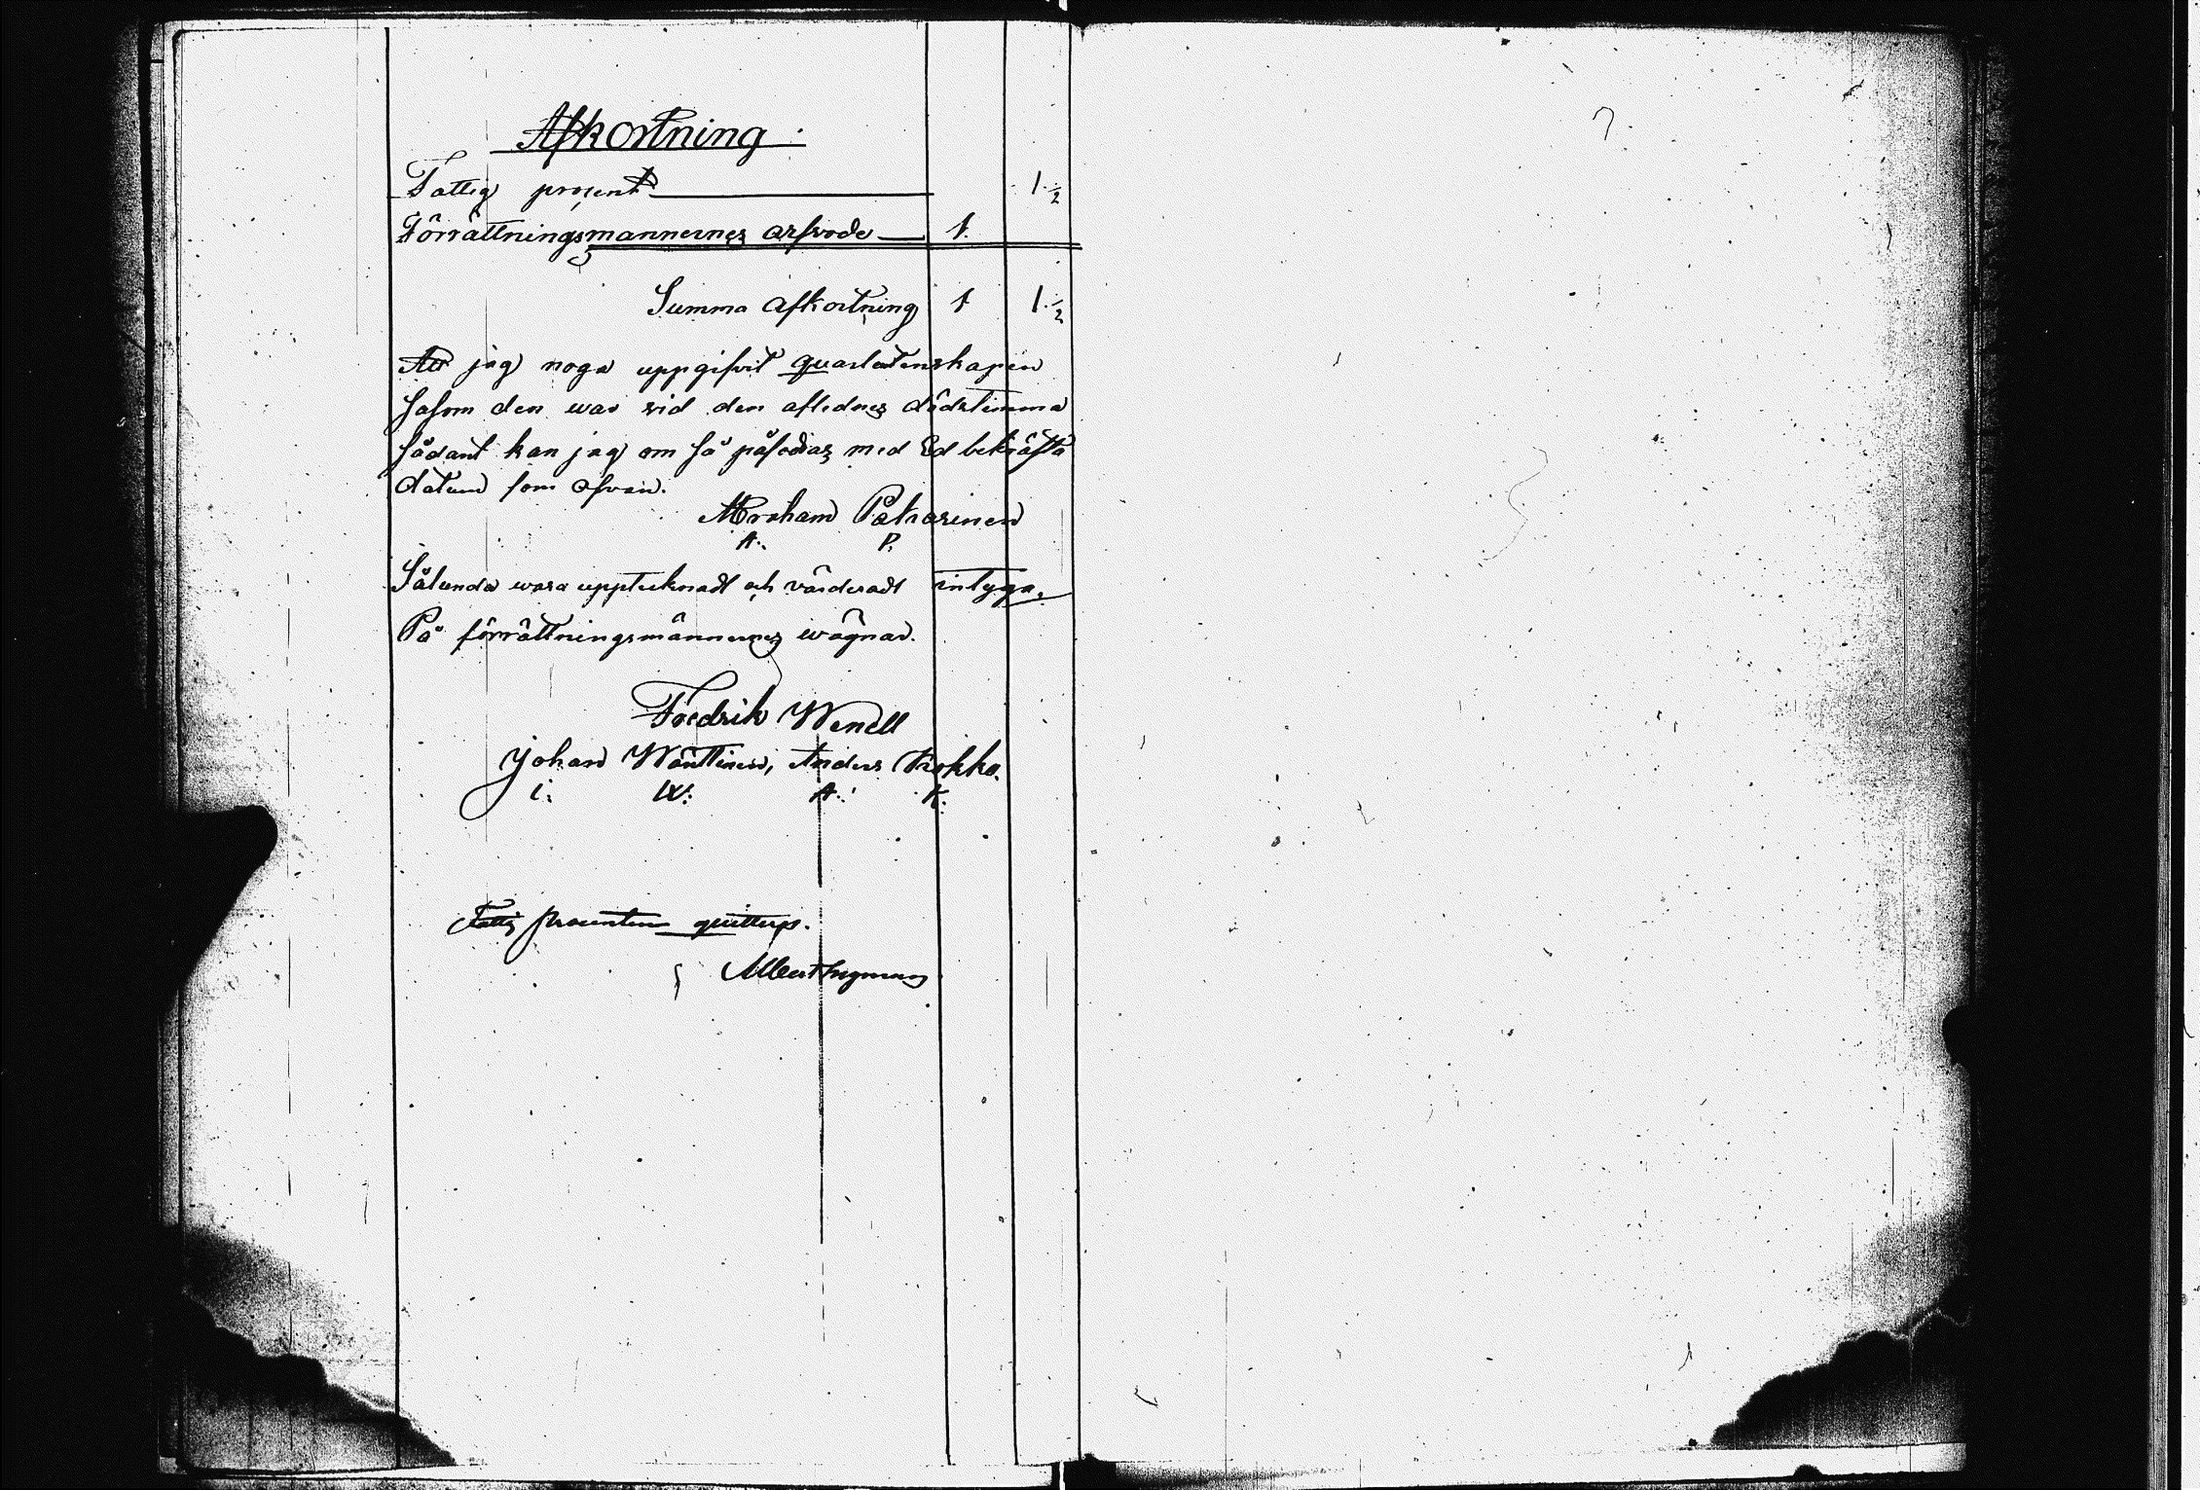 Afkortning.
Fattig prosent 1 1/2
Förrättningsmannernes arfvode 1.
Summa Afkortning 1 1 1/2
Att jag noga uppgifvit quarlåtenskapen
såsom den war vid den aflednes dödstimma
sådant kan jag om så påfodras med Ed bekräfta
datum som ofvan.
Abraham Pakarinen
A. P.
Sålunda wara upptecknadt och värderadt intyga.
På förrättningsmännernes wägnar.
Fredrik Wenell
Johan Wänttinen, Anders Krokko.
I. W. A. K.
Fattig procenten quitteras.
Albert Ingman